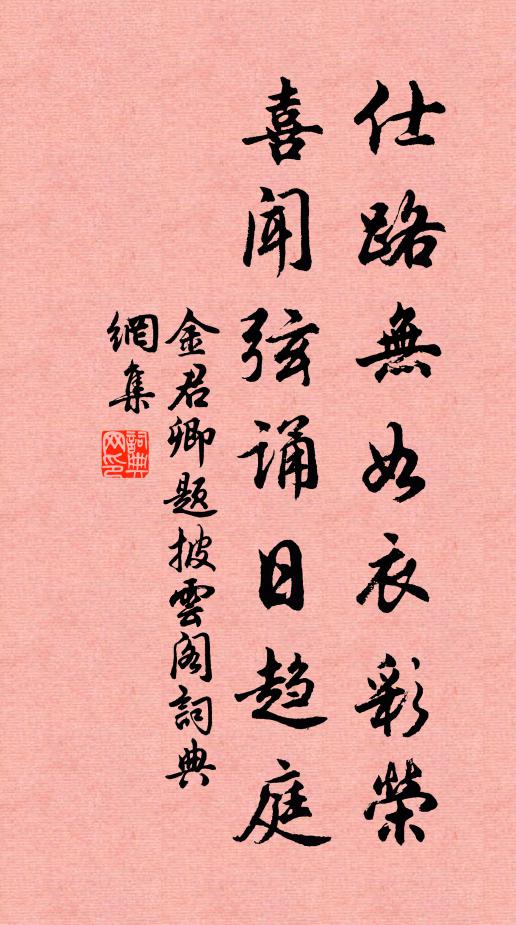 仕路無如衣彩榮
喜聞弦诵日趋庭
金君卿題披雲阁詞典
網集
詞典網印